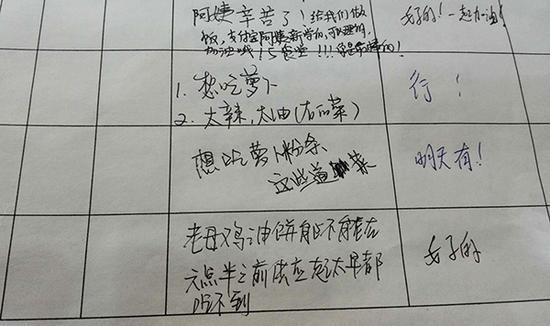 阿姨辛苦了!给我们做 好的!一起加油!
饭,支付宝阿姨新学的,可以理的,
加油哦!5食堂!!!
1. 想吃萝卜 行!
2. 太辣,太油(右面菜)
想吃萝卜粉条 明天有!
这些道 菜
老母鸡油饼能不能在 好的
六点半之前供应起太早都
吃不到